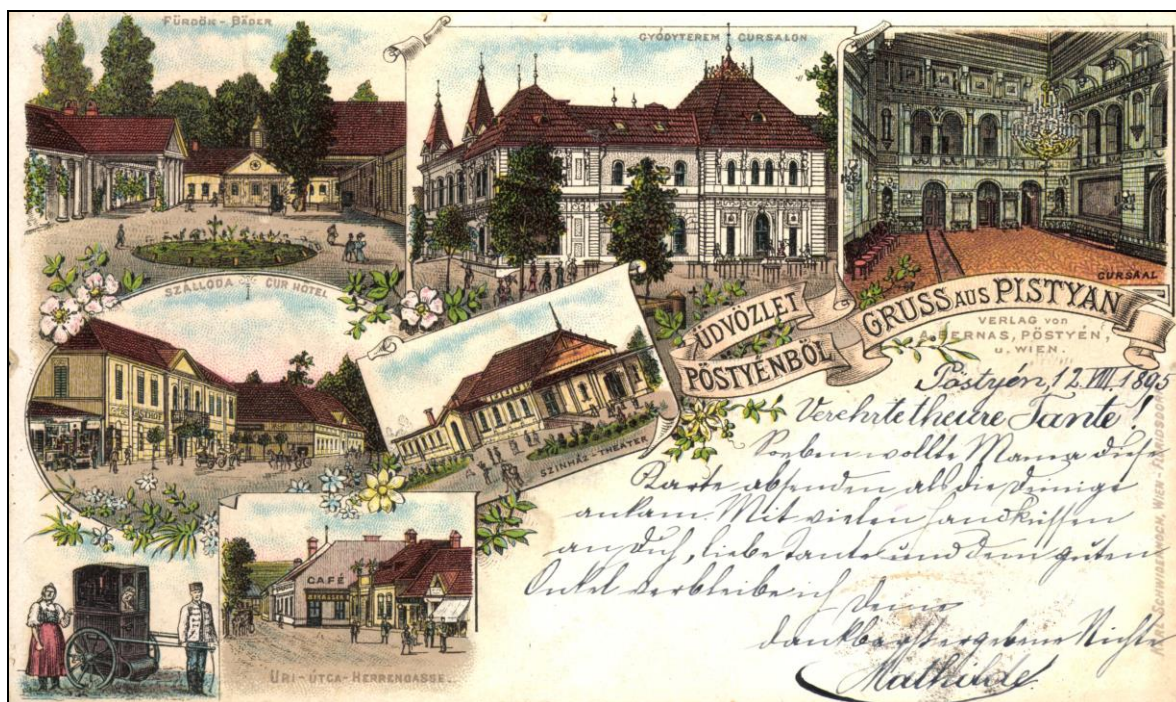 FÜRDŐK - BÄDER
GYÓGYTEREM - CURSALON
CURSAAL
SZÁLLODA - CUR HÔTEL
GASTHOF
SZINHÁZ - THEATER
ÜDVÖZLET
PÖSTYÉNBŐL
GRUSS AUS PISTYAN
VERLAG von
A. BERNAS, PÖSTYÉN,
u. WIEN.
Pöstyén, 12. VIII. 1895
Verehrte theure Tante!
Soeben wollte Mama diese
Karte absenden als die Deinige
ankam. Mit vielen Handküssen
an Dich, liebe Tante und dem guten
Onkel verbleibe ich Deine
dankbarst ergebene Nichte
Mathilde
CAFÉ
URI-UTCA-HERRENGASSE.
SCHWIDERNOCH, WIEN